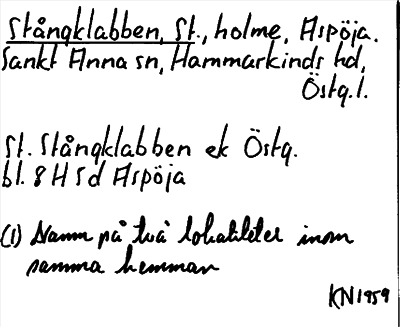 Stångklabben, St., holme, Aspöja.
Sankt Anna sn, Hammarkinds hd,
Östg.l.
St. Stångklabben ek Östg.
bl. 8 H S d Aspöja
(1) Namn på två lokaliteter inom
samma hemman
KN1959